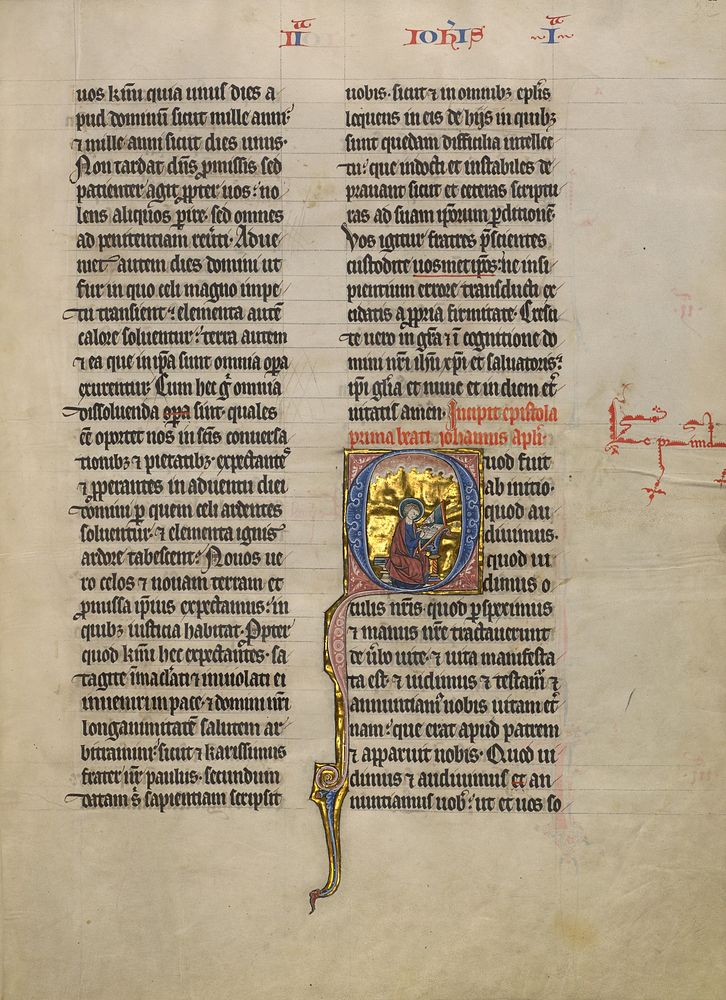 II Ioh'is I
uos kmi quia unus dies a
pud dominum sicut mille anni·
⁊ mille anni sicut dies unus·
Non tardat dn̄s ꝓmissis sed
patienter agit ꝓpter uos· no
lens aliquos ꝑire· sed omnes
ad penitentiam reuti· Adue
niet autem dies domini ut
fur in quo celi magno impe
tu transient ⁊ elementa autē
calore soluentur· terra autem
⁊ ea que in ip̄a sunt omnia oꝑa
exurentur· Cum hec g̊ omnia
dissoluenda oꝑa sint· quales
ēē oportet nos in sc̄is conuersa
tionibꝫ ⁊ pietatibꝫ· expectante᷒
⁊ ꝓperantes in aduentū diei
domini ꝑ quem celi ardentes
soluentur· ⁊ elementa ignis
ardore tabescent· Nouos ue
ro celos ⁊ nouam terram et
ꝓmissa ip̄ius expectamus· in
quibꝫ iusticia habitat· Propter
quod kmi hec expectantes· sa
tagite īmaclati ⁊ inuiolati ei
inueniri in pace· ⁊ domini nr̄i
longanimitatem salutem ar
bitramini· sicut ⁊ karissimus
frater ur̄ paulus· secundum
datam s᷒ sapientiam scripsit
uobis· sicut ⁊ in omnibꝫ epl̄is
loquens in eis de hijs in quibꝫ
sunt quedam difficilia intellec
tu· que indocti et instabiles de
prauant sicut et ceteras scriptu
ras ad suam ip̄orum ꝑditionē·
Vos igitur fratres p̄scientes
custodite uosmetip̄os· ne insi
pientium errore transducti ex
cidatis a ꝓpria firmitate· Cresci
te uero in gr̄a ⁊ ī cognitione do
mini nr̄i ih̄u xp̄i et saluatoris·
ip̄i gl̄ia et nunc et in diem et̄
nitatis amen· Incipit epistola
prima beati iohannis apl̄i·
Quod fuit
ab initio·
quod au
diuimus·
quod ui
dimus o
culis nr̄is quod ꝑspeximus
et manus nr̄e tractauerunt
de ūbo uite· ⁊ uita manifesta
ta est· ⁊ uidimus ⁊ testam᷒ ⁊
annuntiam᷒ uobis uitam et̄
nam· que erat apud patrem
⁊ apparuit nobis· Quod ui
dimus ⁊ audiuimus et an
nuntiamus uob᷒· ut et uos so